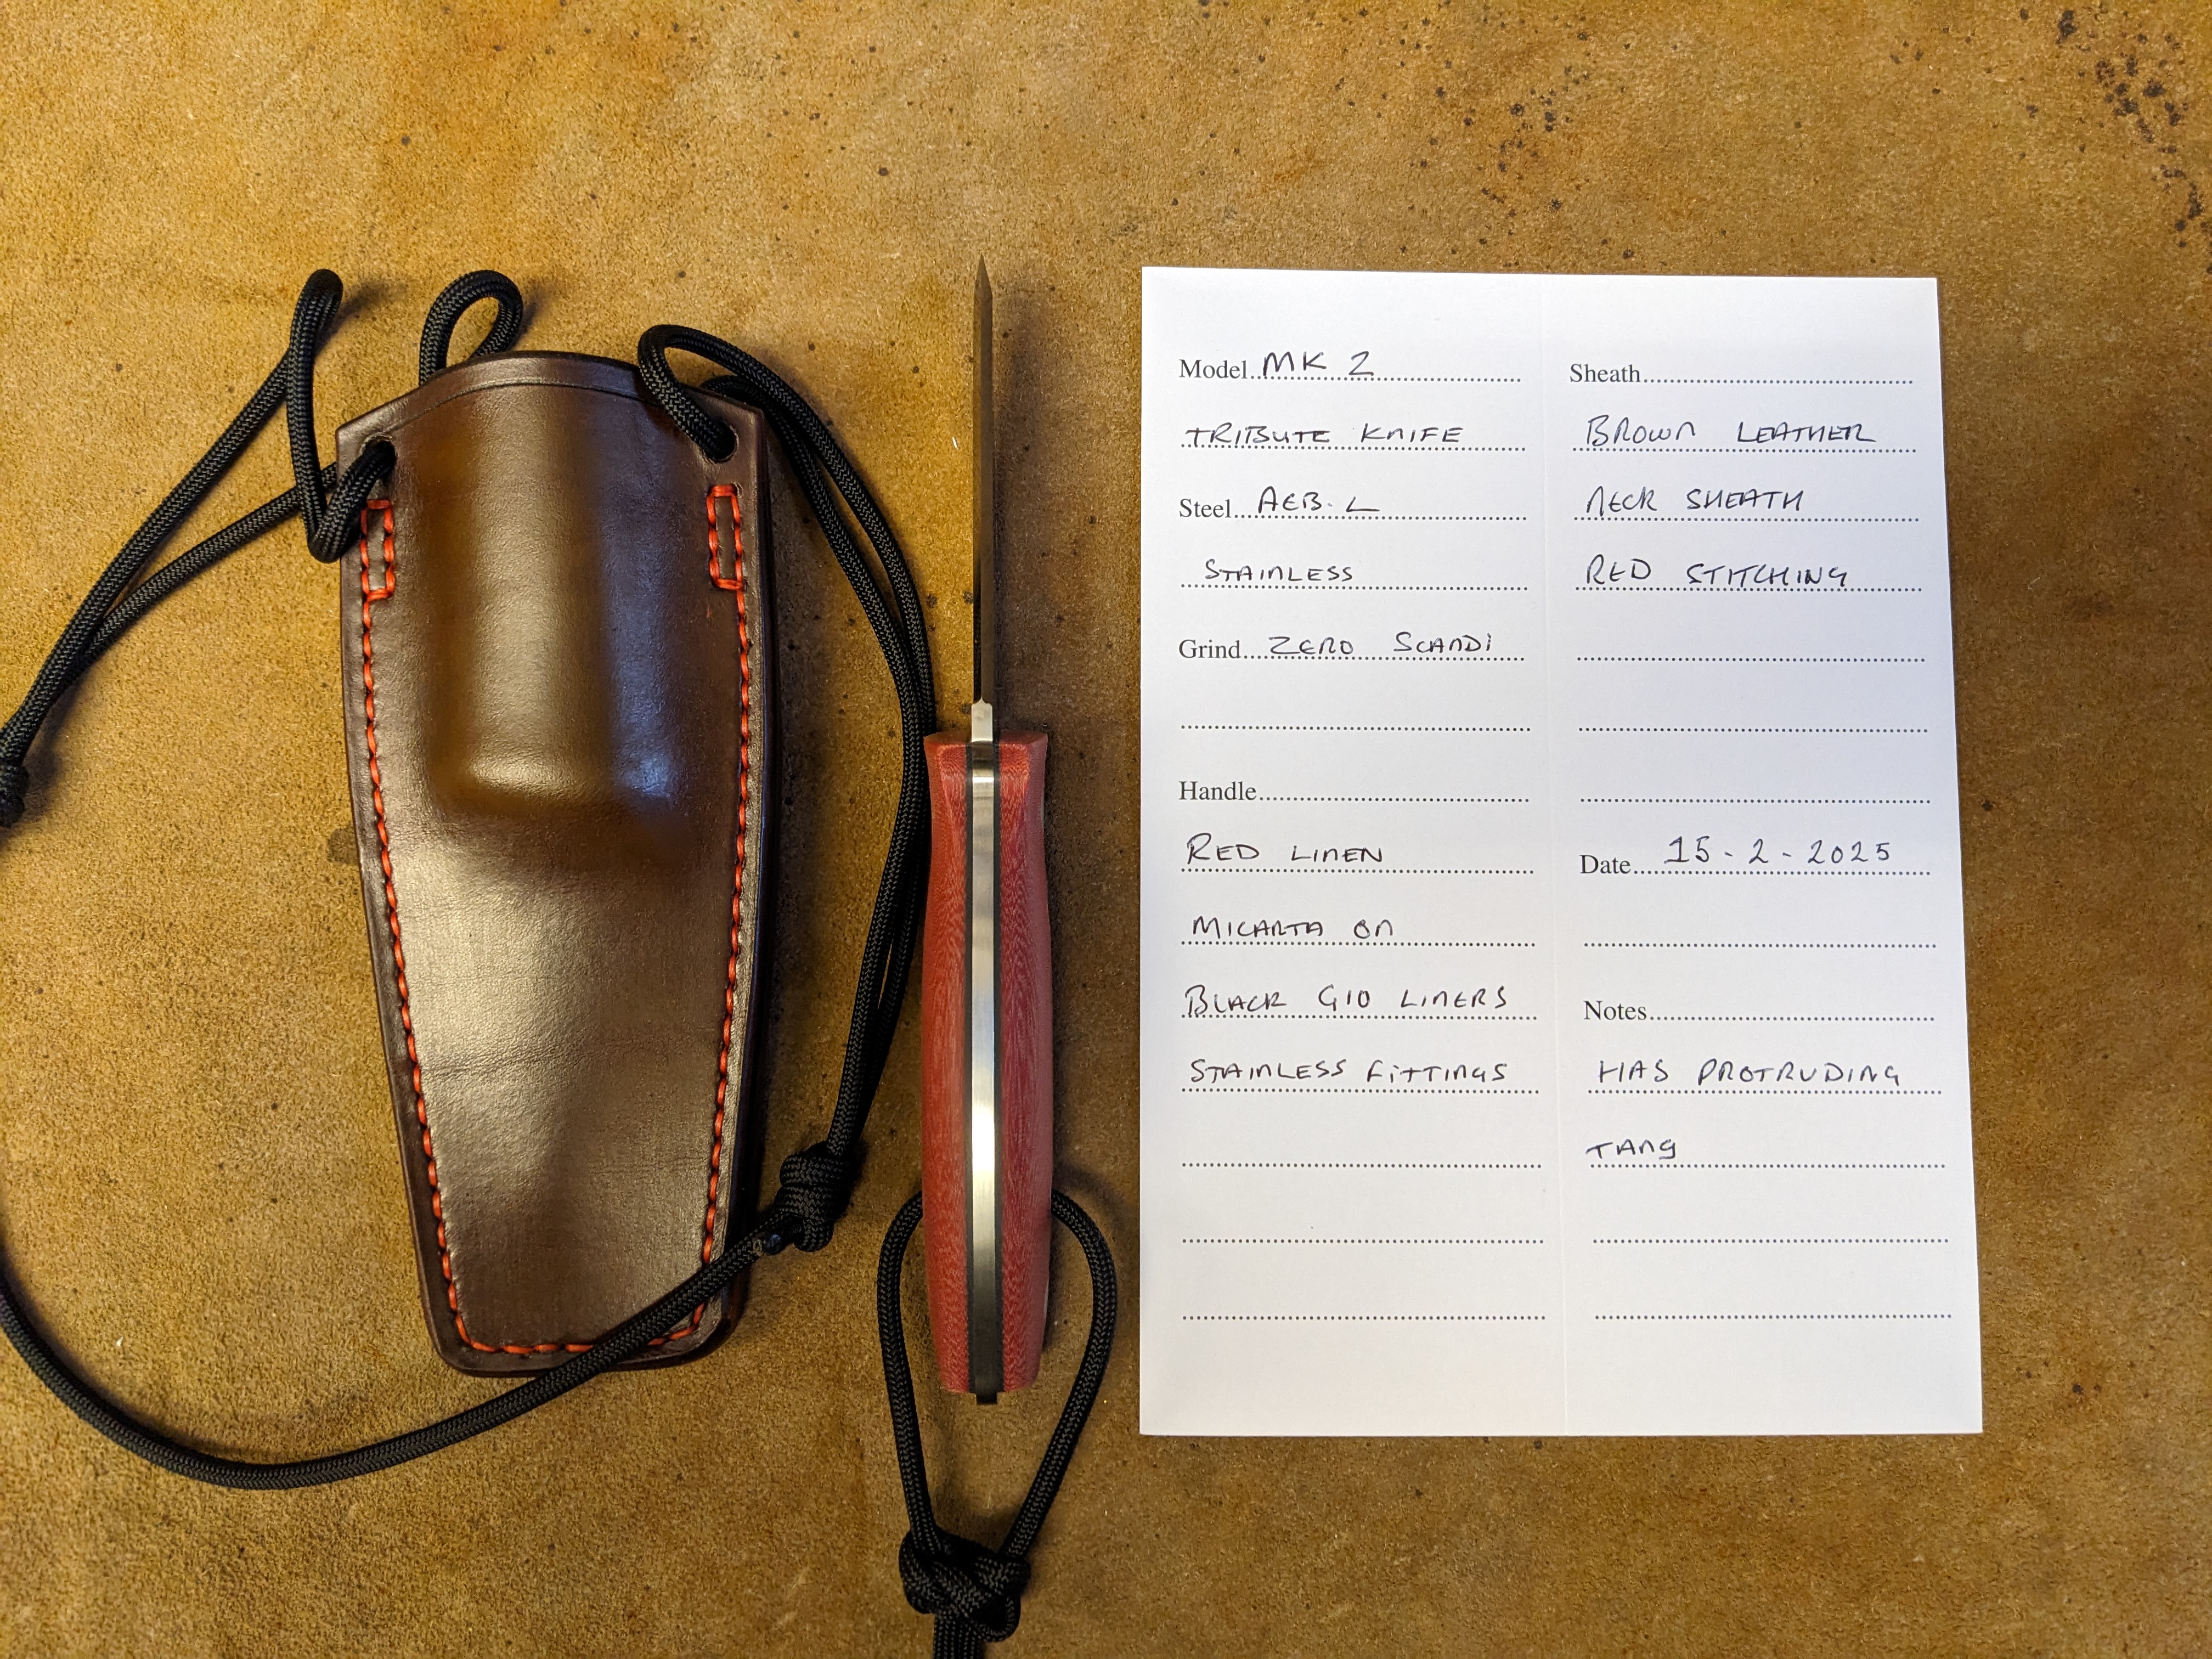 Model MK 2
TRIBUTE KNIFE
Steel AEB-L
STAINLESS
Grind ZERO SCANDI
Handle
RED LINEN
MICARTA ON
BLACK G10 LINERS
STAINLESS FiTTINGS
Sheath
BROWN LEATHER
NECK SHEATH
RED STITCHING
Date 15-2-2025
Notes
HAS PROTRUDING
TANG